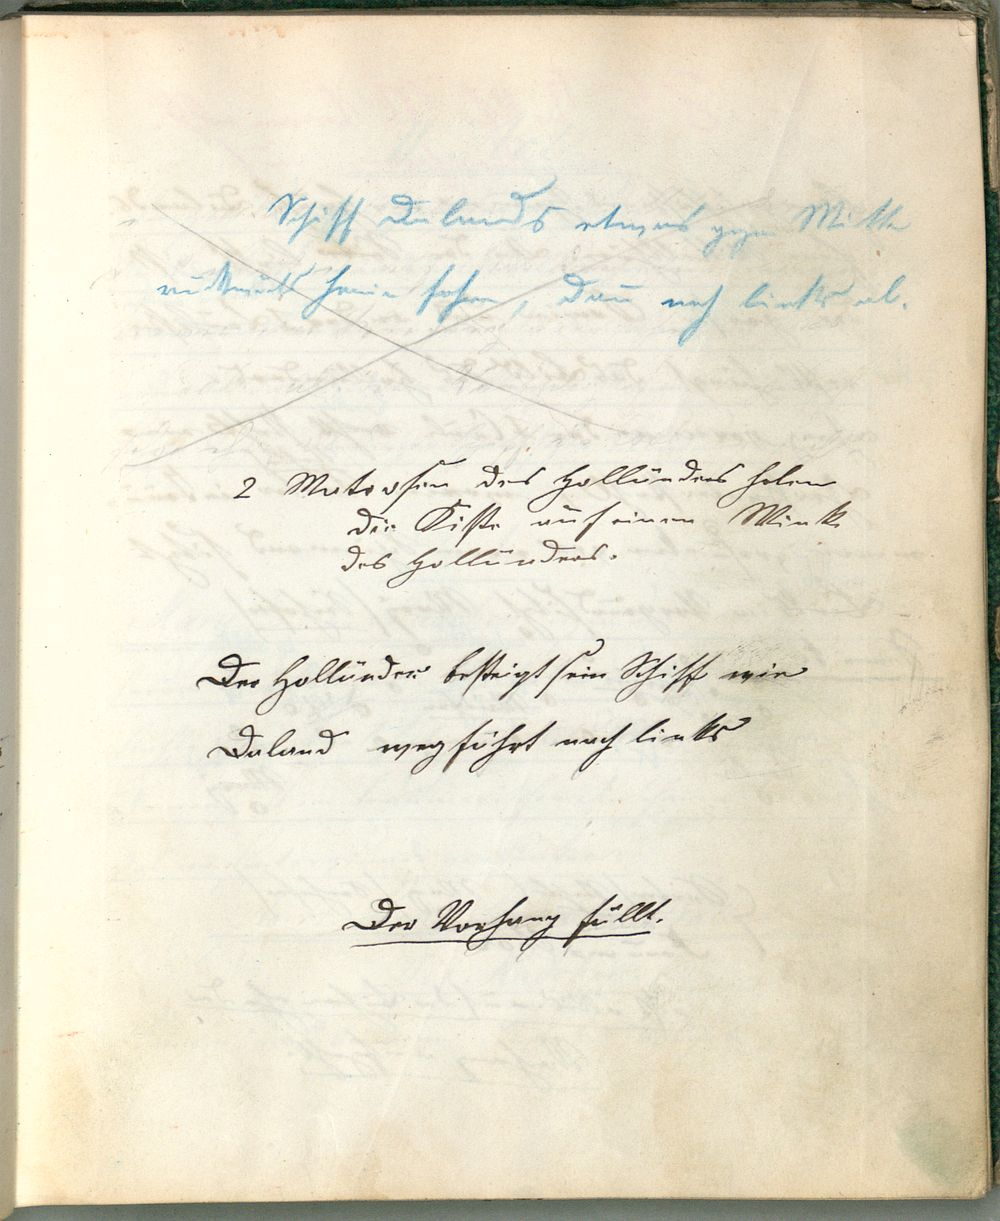 Schiff Dalands etwas gegen Mitte
rückwärts herein fahren, dann nach links ab.
2 Matrosen des Holländers holen
die Kiste auf einen Wink
des Holländers.
Der Holländer besteigt sein Schiff wie
Daland wegfährt nach links
Der Vorhang fällt.